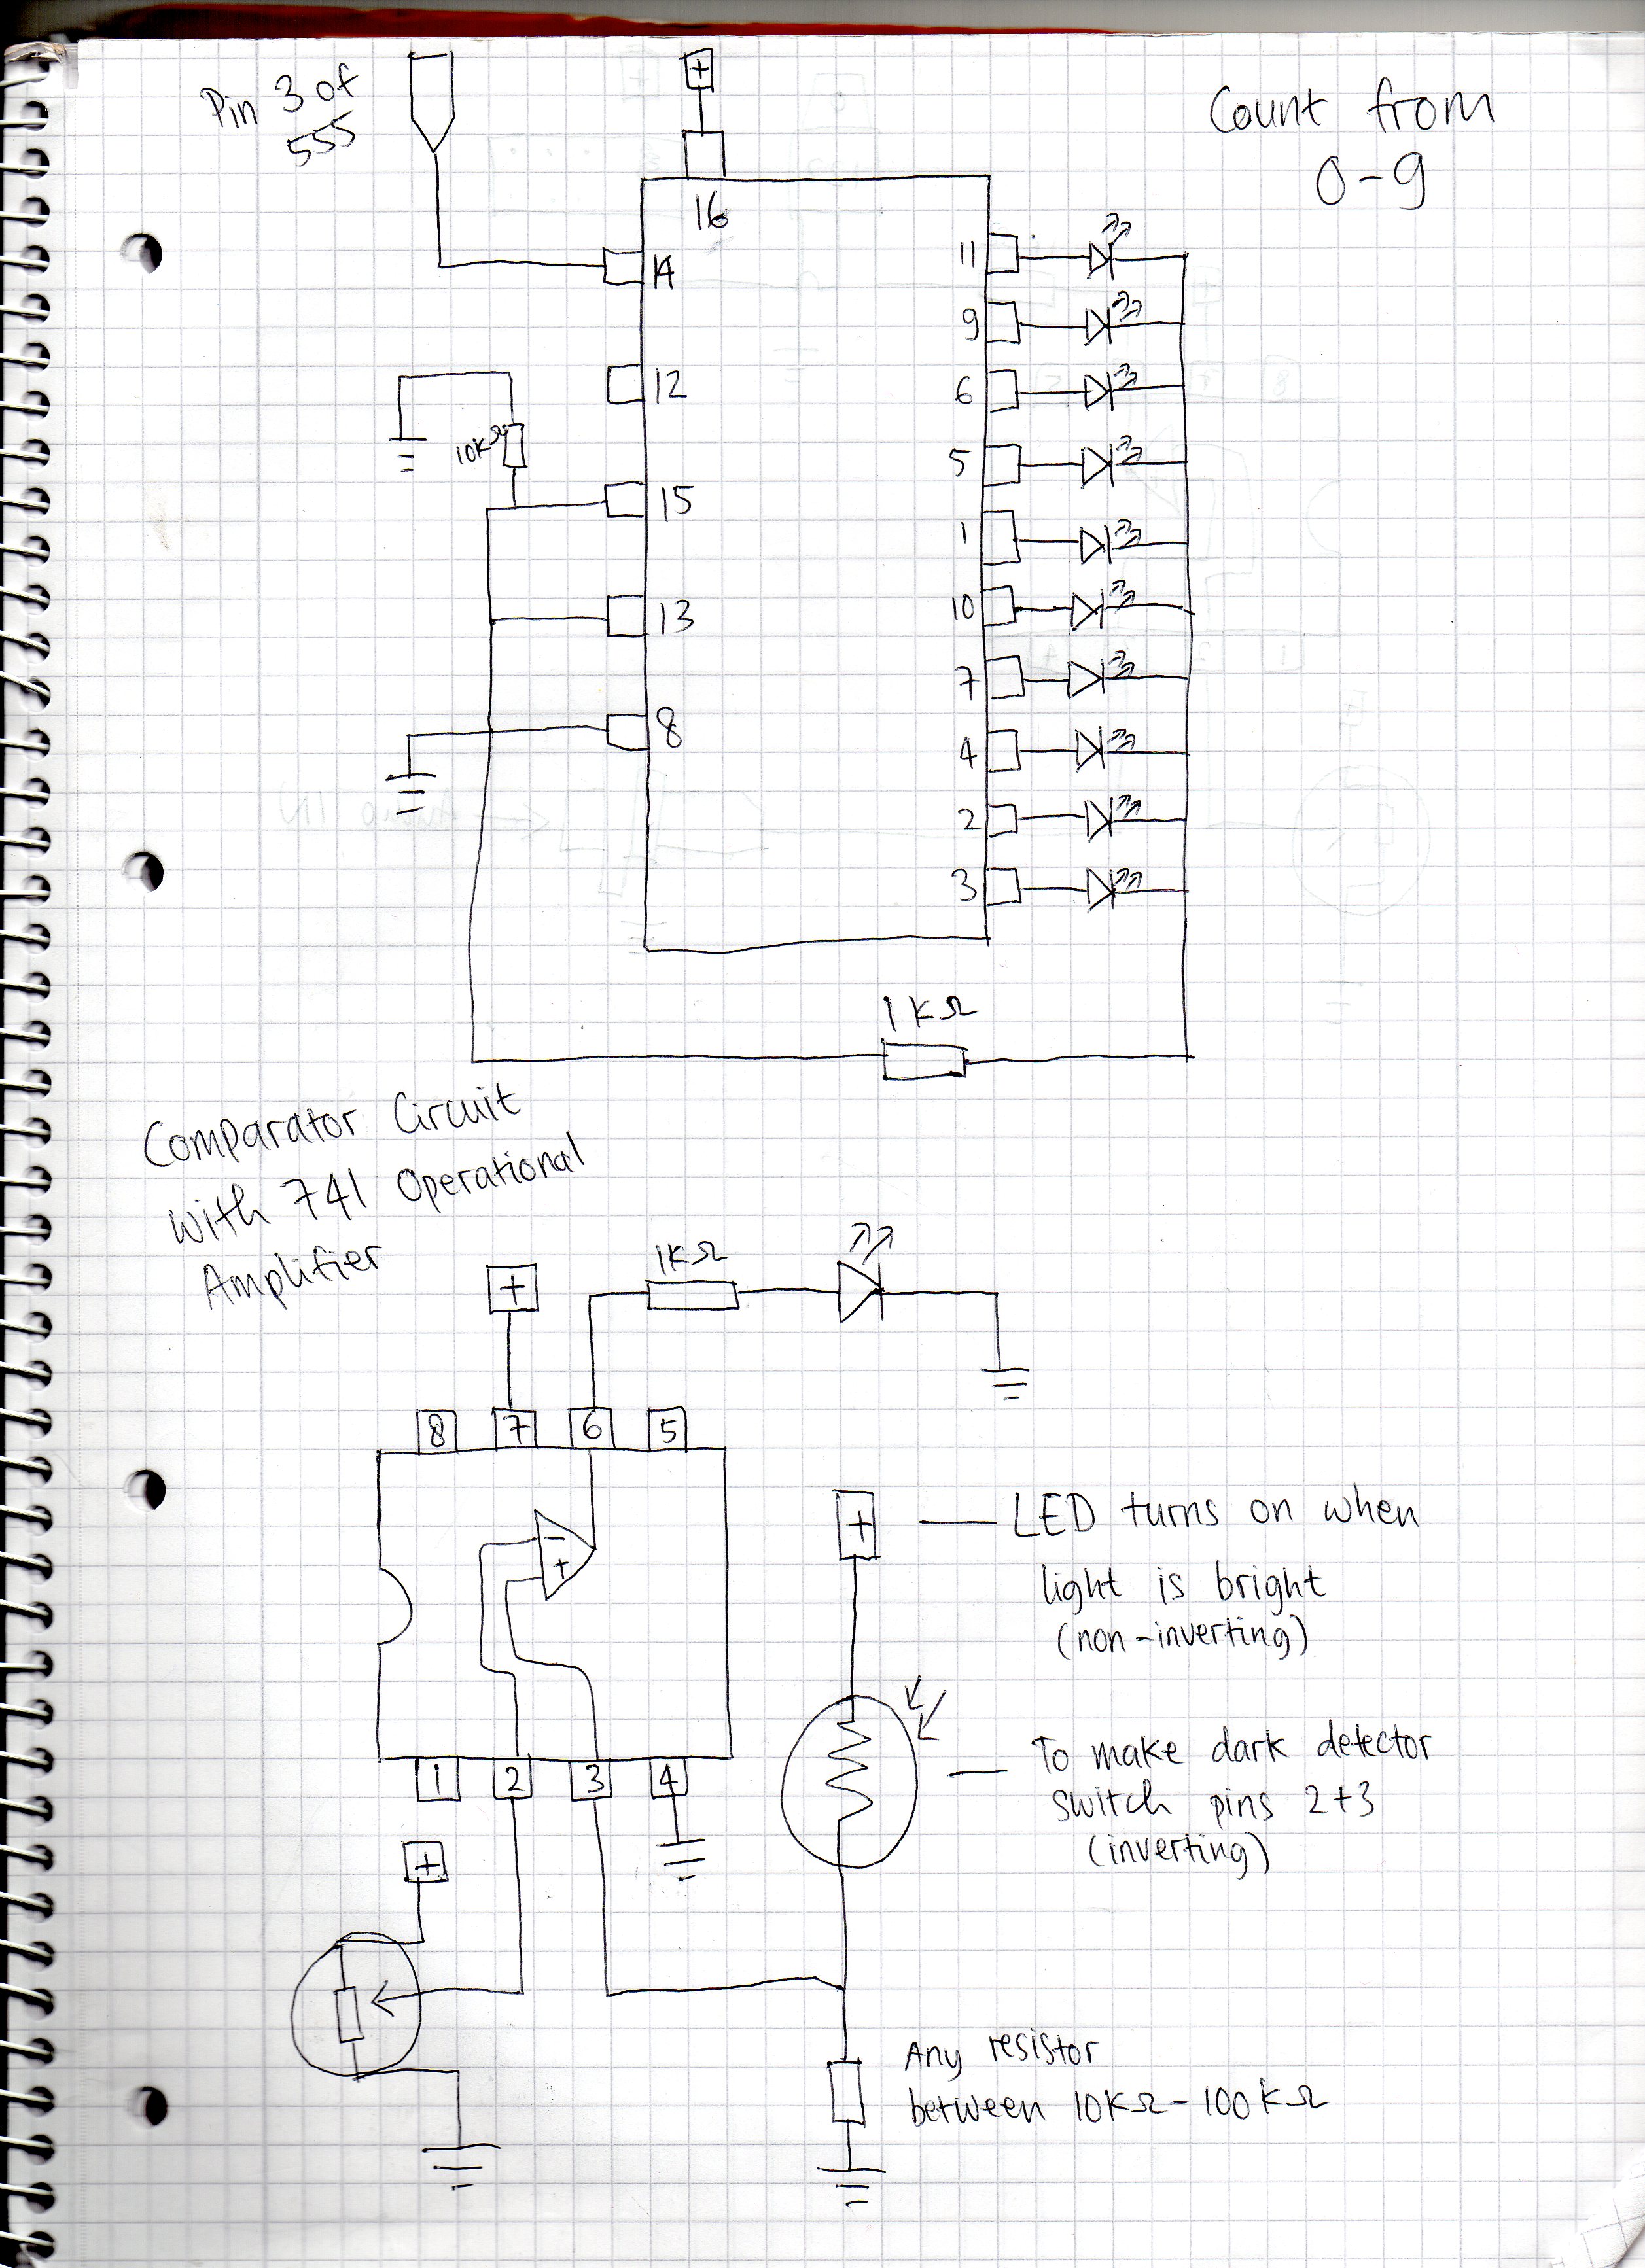 Pin 3 of
555
+
Count from
0-9
16
14
12
10KΩ
15
13
8
11
9
6
5
1
10
7
4
2
3
1KΩ
Comparator Circuit
with 741 Operational
Amplifier
+
1KΩ
8 7 6 5
-
+
1 2 3 4
+
+
LED turns on when
light is bright
(non-inverting)
To make dark detector
switch pins 2+3
(inverting)
Any resistor
between 10KΩ-100KΩ